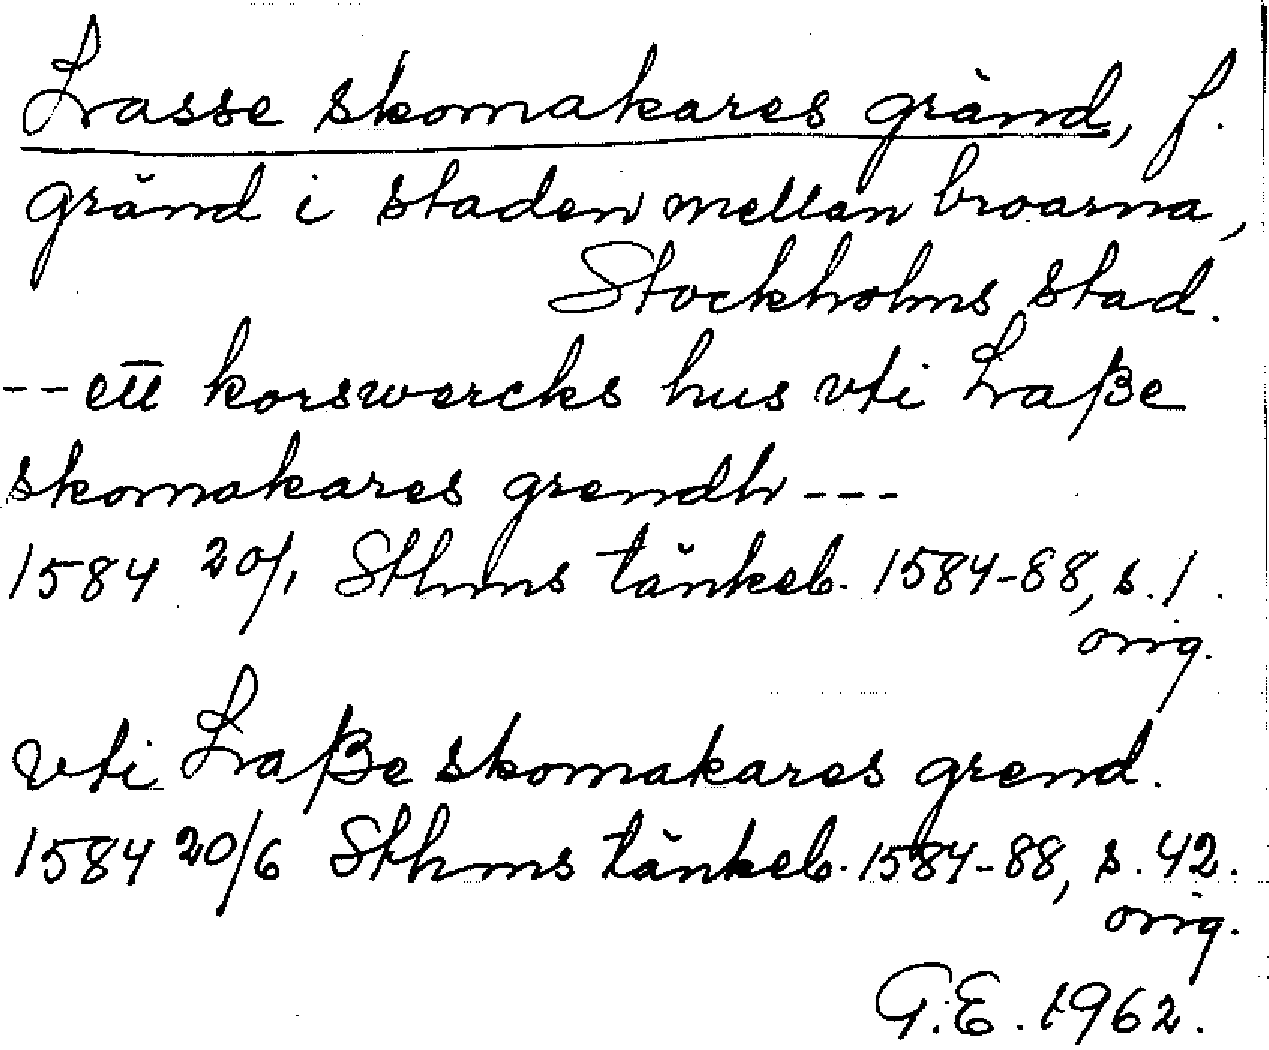 Lasse skomakares gränd, f.
gränd i staden mellan broarna,
Stockholms stad.
-- ett korswercks hus vti Laße
skomakares grendh ---
1584 20/1 Sthms tänkeb. 1584-88, s. 1.
orig.
vti Laße skomakares grend.
1584 20/6 Sthms tänkeb. 1584-88, s. 42.
orig.
G.E. 1962.